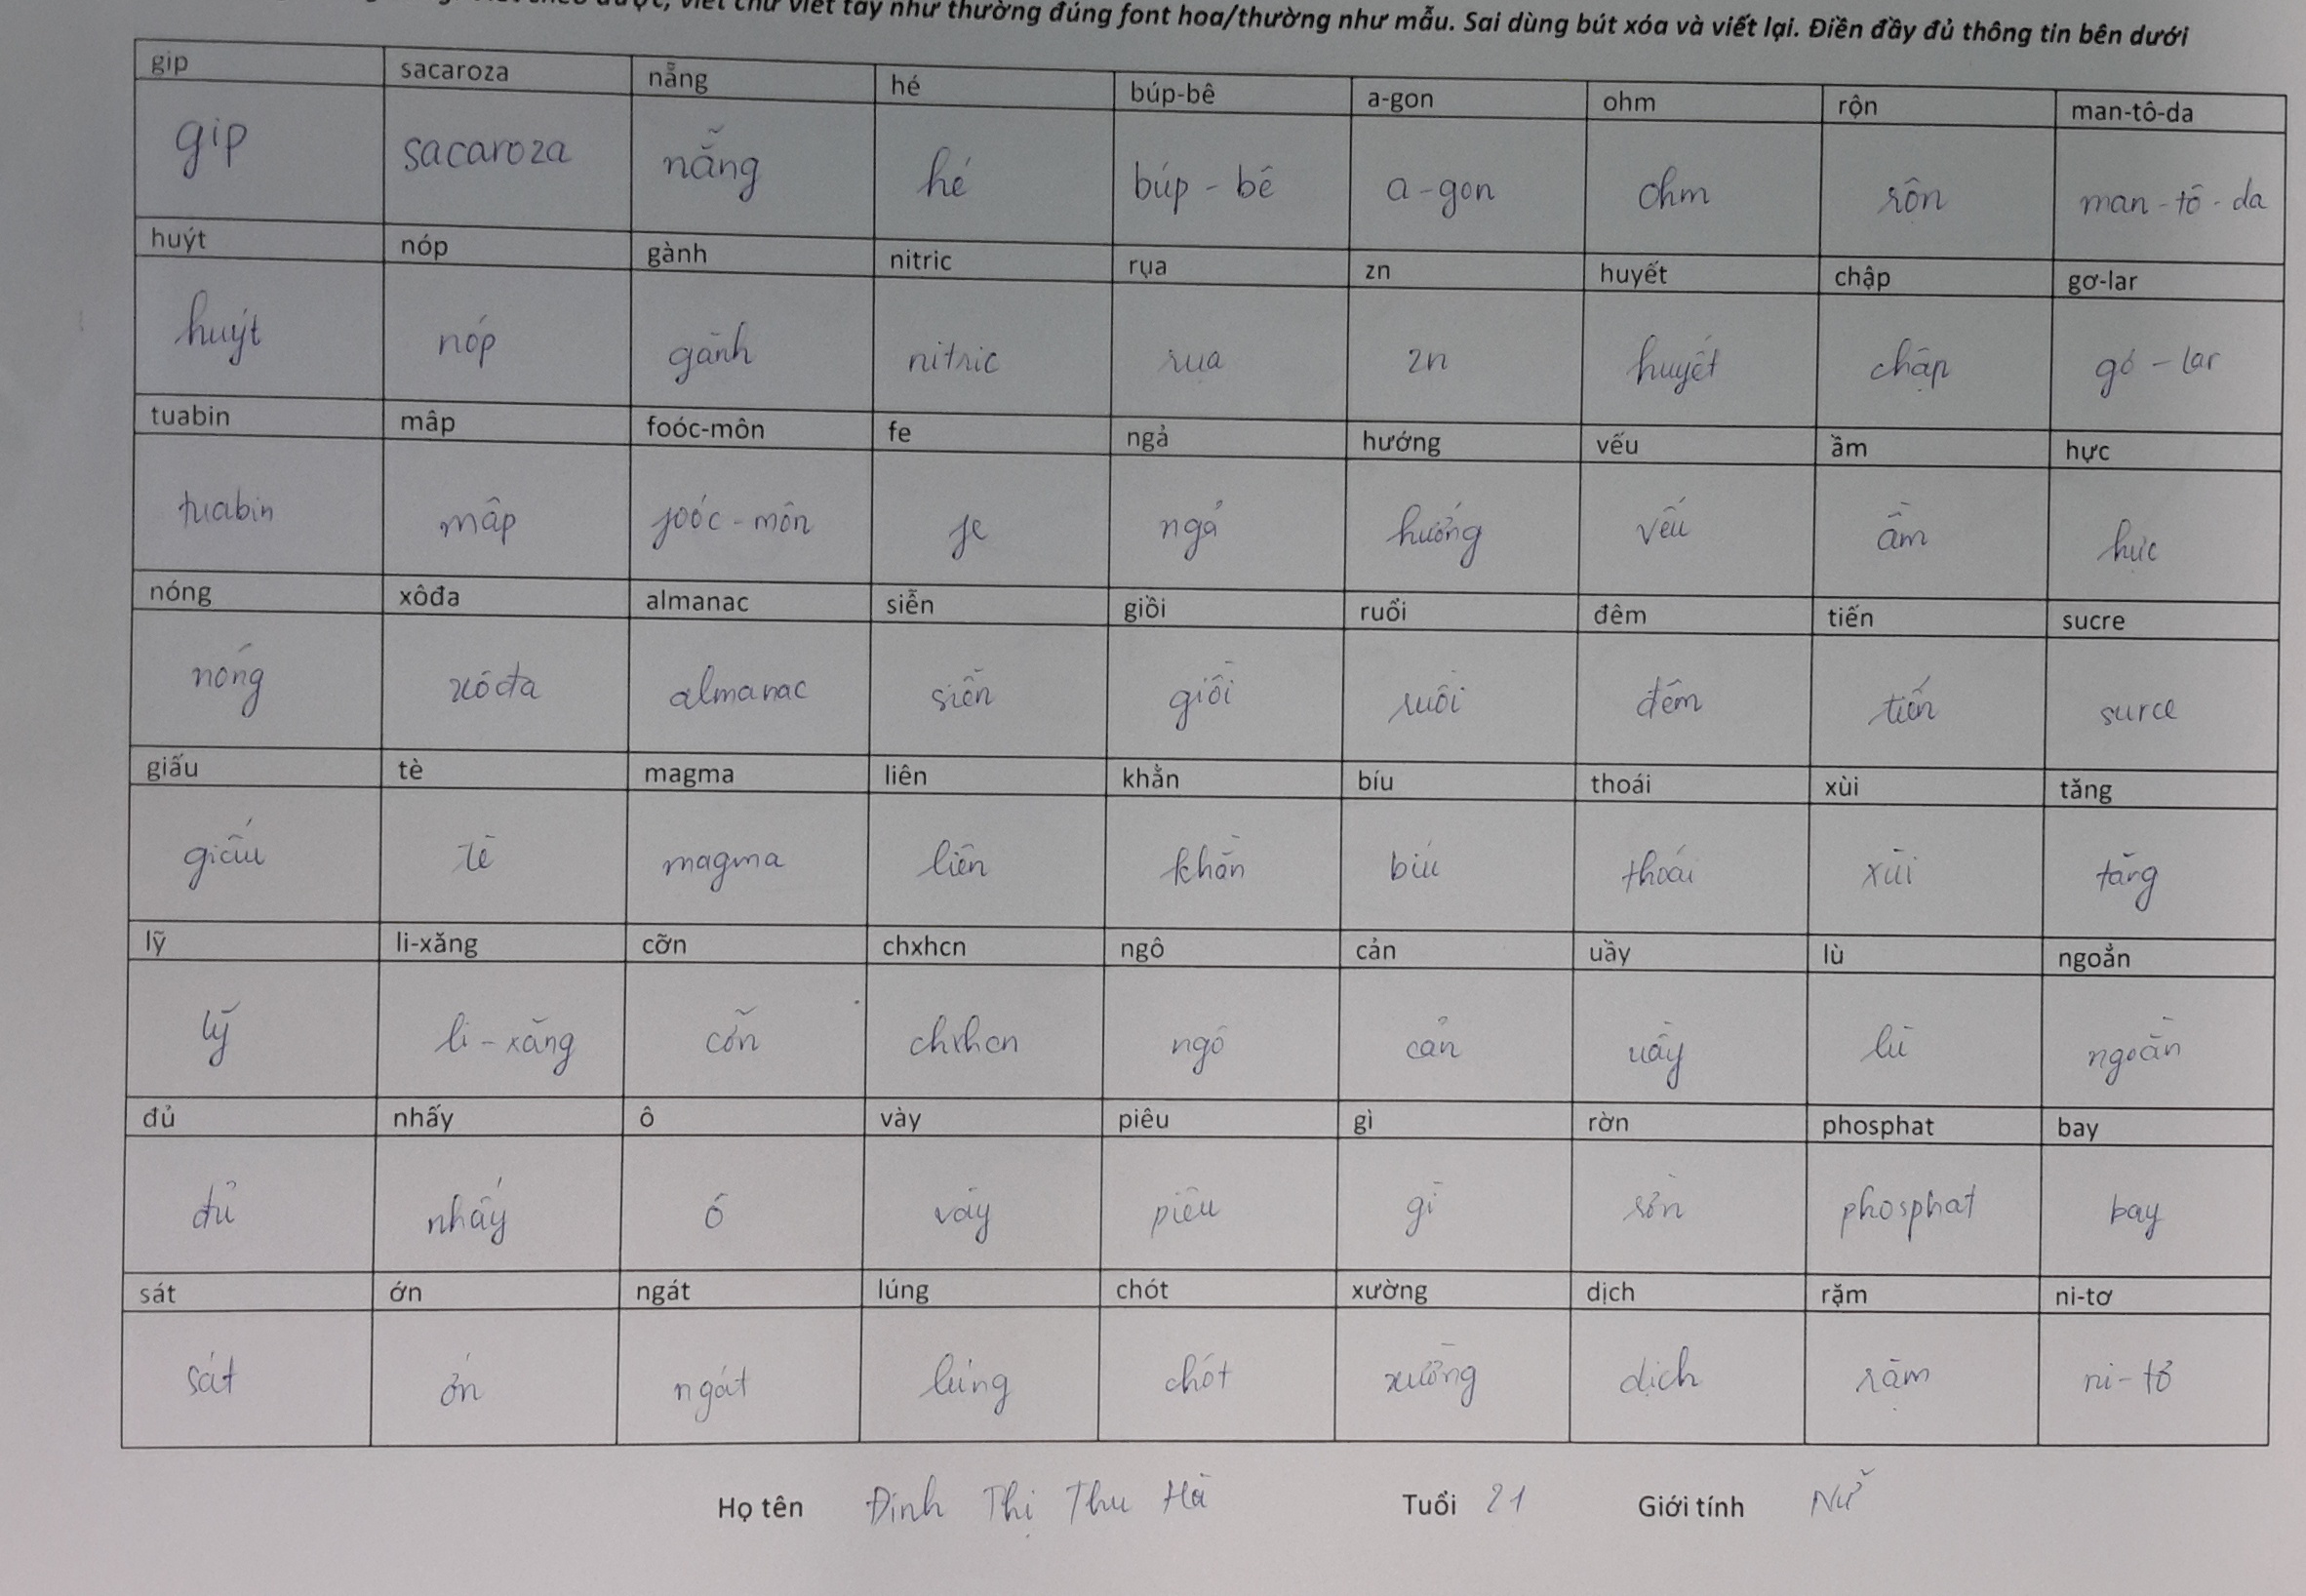 viết chữ viết tay như thường đúng font hoa/thường như mẫu. Sai dùng bút xóa và viết lại. Điền đầy đủ thông tin bên dưới
gip sacaroza nẵng hé búp-bê a-gon ohm rộn man-tô-da
gip sacaroza nẵng hé búp - bê a - gon ohm rộn man - tô - da
huýt nóp gành nitric rụa zn huyết chập gơ-lar
huýt nóp gành nitric rụa zn huyết chập gơ - lar
tuabin mâp foóc-môn fe ngả hướng vếu ầm hực
tuabin mâp foóc - môn fe ngả hướng vếu ầm hực
nóng xôđa almanac siễn giồi ruổi đêm tiến sucre
nóng xôđa almanac siễn giồi ruổi đêm tiến surce
giấu tè magma liên khằn bíu thoái xùi tăng
giấu tè magma liên khằn bíu thoái xùi tăng
lỹ li-xăng cỡn chxhcn ngô cản uầy lù ngoằn
lỹ li - xăng cỡn chxhcn ngô cản uầy lù ngoằn
đủ nhấy ô vày piêu gì rờn phosphat bay
đủ nhấy ô vày piêu gì rờn phosphat bay
sát ớn ngát lúng chót xường dịch rặm ni-tơ
sát ớn ngát lúng chót xường dịch rặm ni - tơ
Họ tên Đinh Thị Thu Hà Tuổi 21 Giới tính Nữ